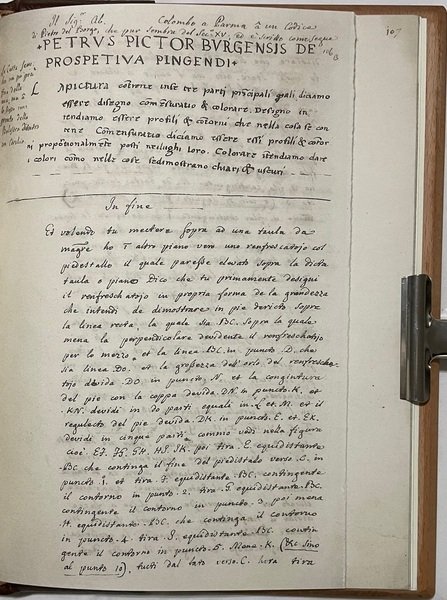 Il Sigr. Ab. Colombo a Parma à un Codice
di Pietro del Borgo, che pur sembra del Sec. XV, ed è scritto come segue
107
+PETRVS PICTOR BVRGENSIS DE
PROSPETIVA PINGENDI+
LAPICTURA contiene inse tre parti principali quali diciamo
essere disegno Commensuratio & colorare. Disegno in
tendiamo essere profili & contorni che nella cosa se con
tene Commensuratio diciamo essere essi profili & contor
ni proportionalmente posti nei luoghi loro. Colorare itendiamo dare
i colori como nelle cose sedimostrano chiari & uscuri
In fine
Et volendo tu mectere sopra ad una taula da
magre ho ĩ altro piano vero uno renfrescatojo col
piedestallo il quale paresse elvato sopra la dicta
taula o piano. Dico che tu primamente designi
il renfreschatojo in propria forma de la grandezza
che intendi de dimostrare in pie dericto sopre
la linea recta, la quale sia .BC. sopra la quale
mena la perpendicolare devidente il renfreschatojo
per lo mezzo, et la linea .BC. in puncto .D. che
sia linea .DO. et la grossezza dell'orlo del renfrescha-
tojo devida .DO. in puncto .N. et la congiontura
del pie con la coppa devida .DN. in puncto .K. et
.KN. devidi in do parti equali in .L. et .M. et il
regoletto del pie devida .DK. in puncto .E. et .EK.
devidi in cinque parti commo vedi nella figura
cioè .EF. FG. GH. HI. IK. poi tira .E. equidistante
.BC che continga il fine del piedestalo verso .C. in
puncto 1. et tira .F. equidistante .BC. contingente
il contorno in punto .2. tira .G. equidistante .BC.
contingente il contorno in puncto .3. poi mena
.H. equidistante .BC. che continga il contorno
in puncto .4. tira .I. equidistante .BC. contin
gente il contorno in puncto .5. Mena .K. (&c sino
al punto 10), tucti dal lato verso .C. hora tira